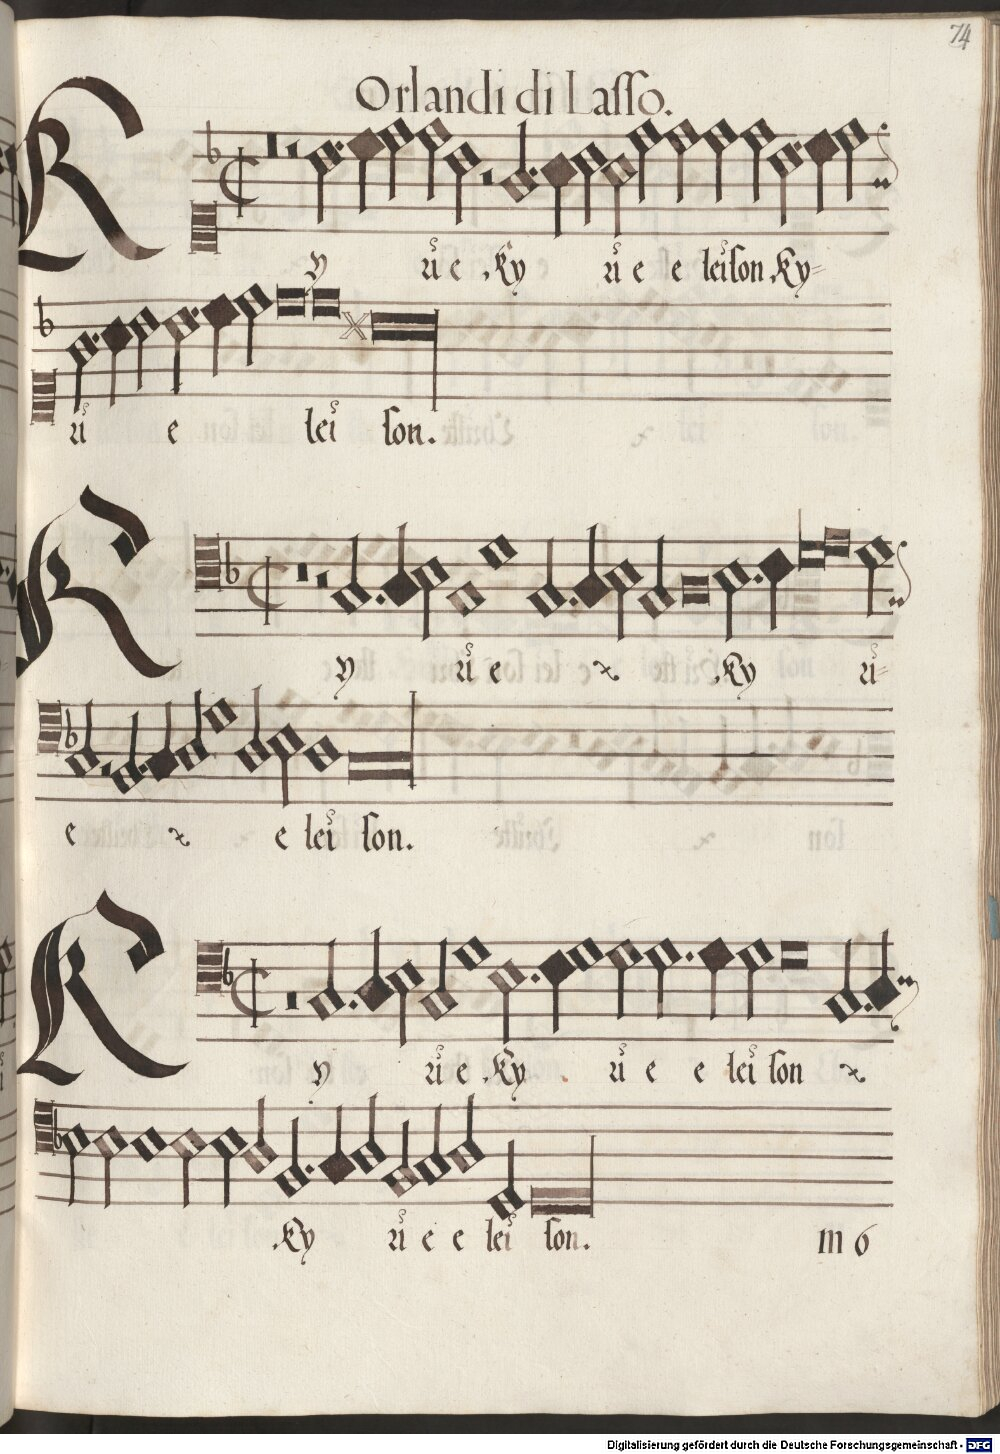 74
Orlandi di Lasso.
K
y ri e Ky ri e e leison Ky=
ri e lei son.
K
y ri e Ky ri=
e e lei son.
K
y ri e Ky ri e e lei son
Ky ri e e lei son. m 6
Digitalisierung gefördert durch die Deutsche Forschungsgemeinschaft - DFG